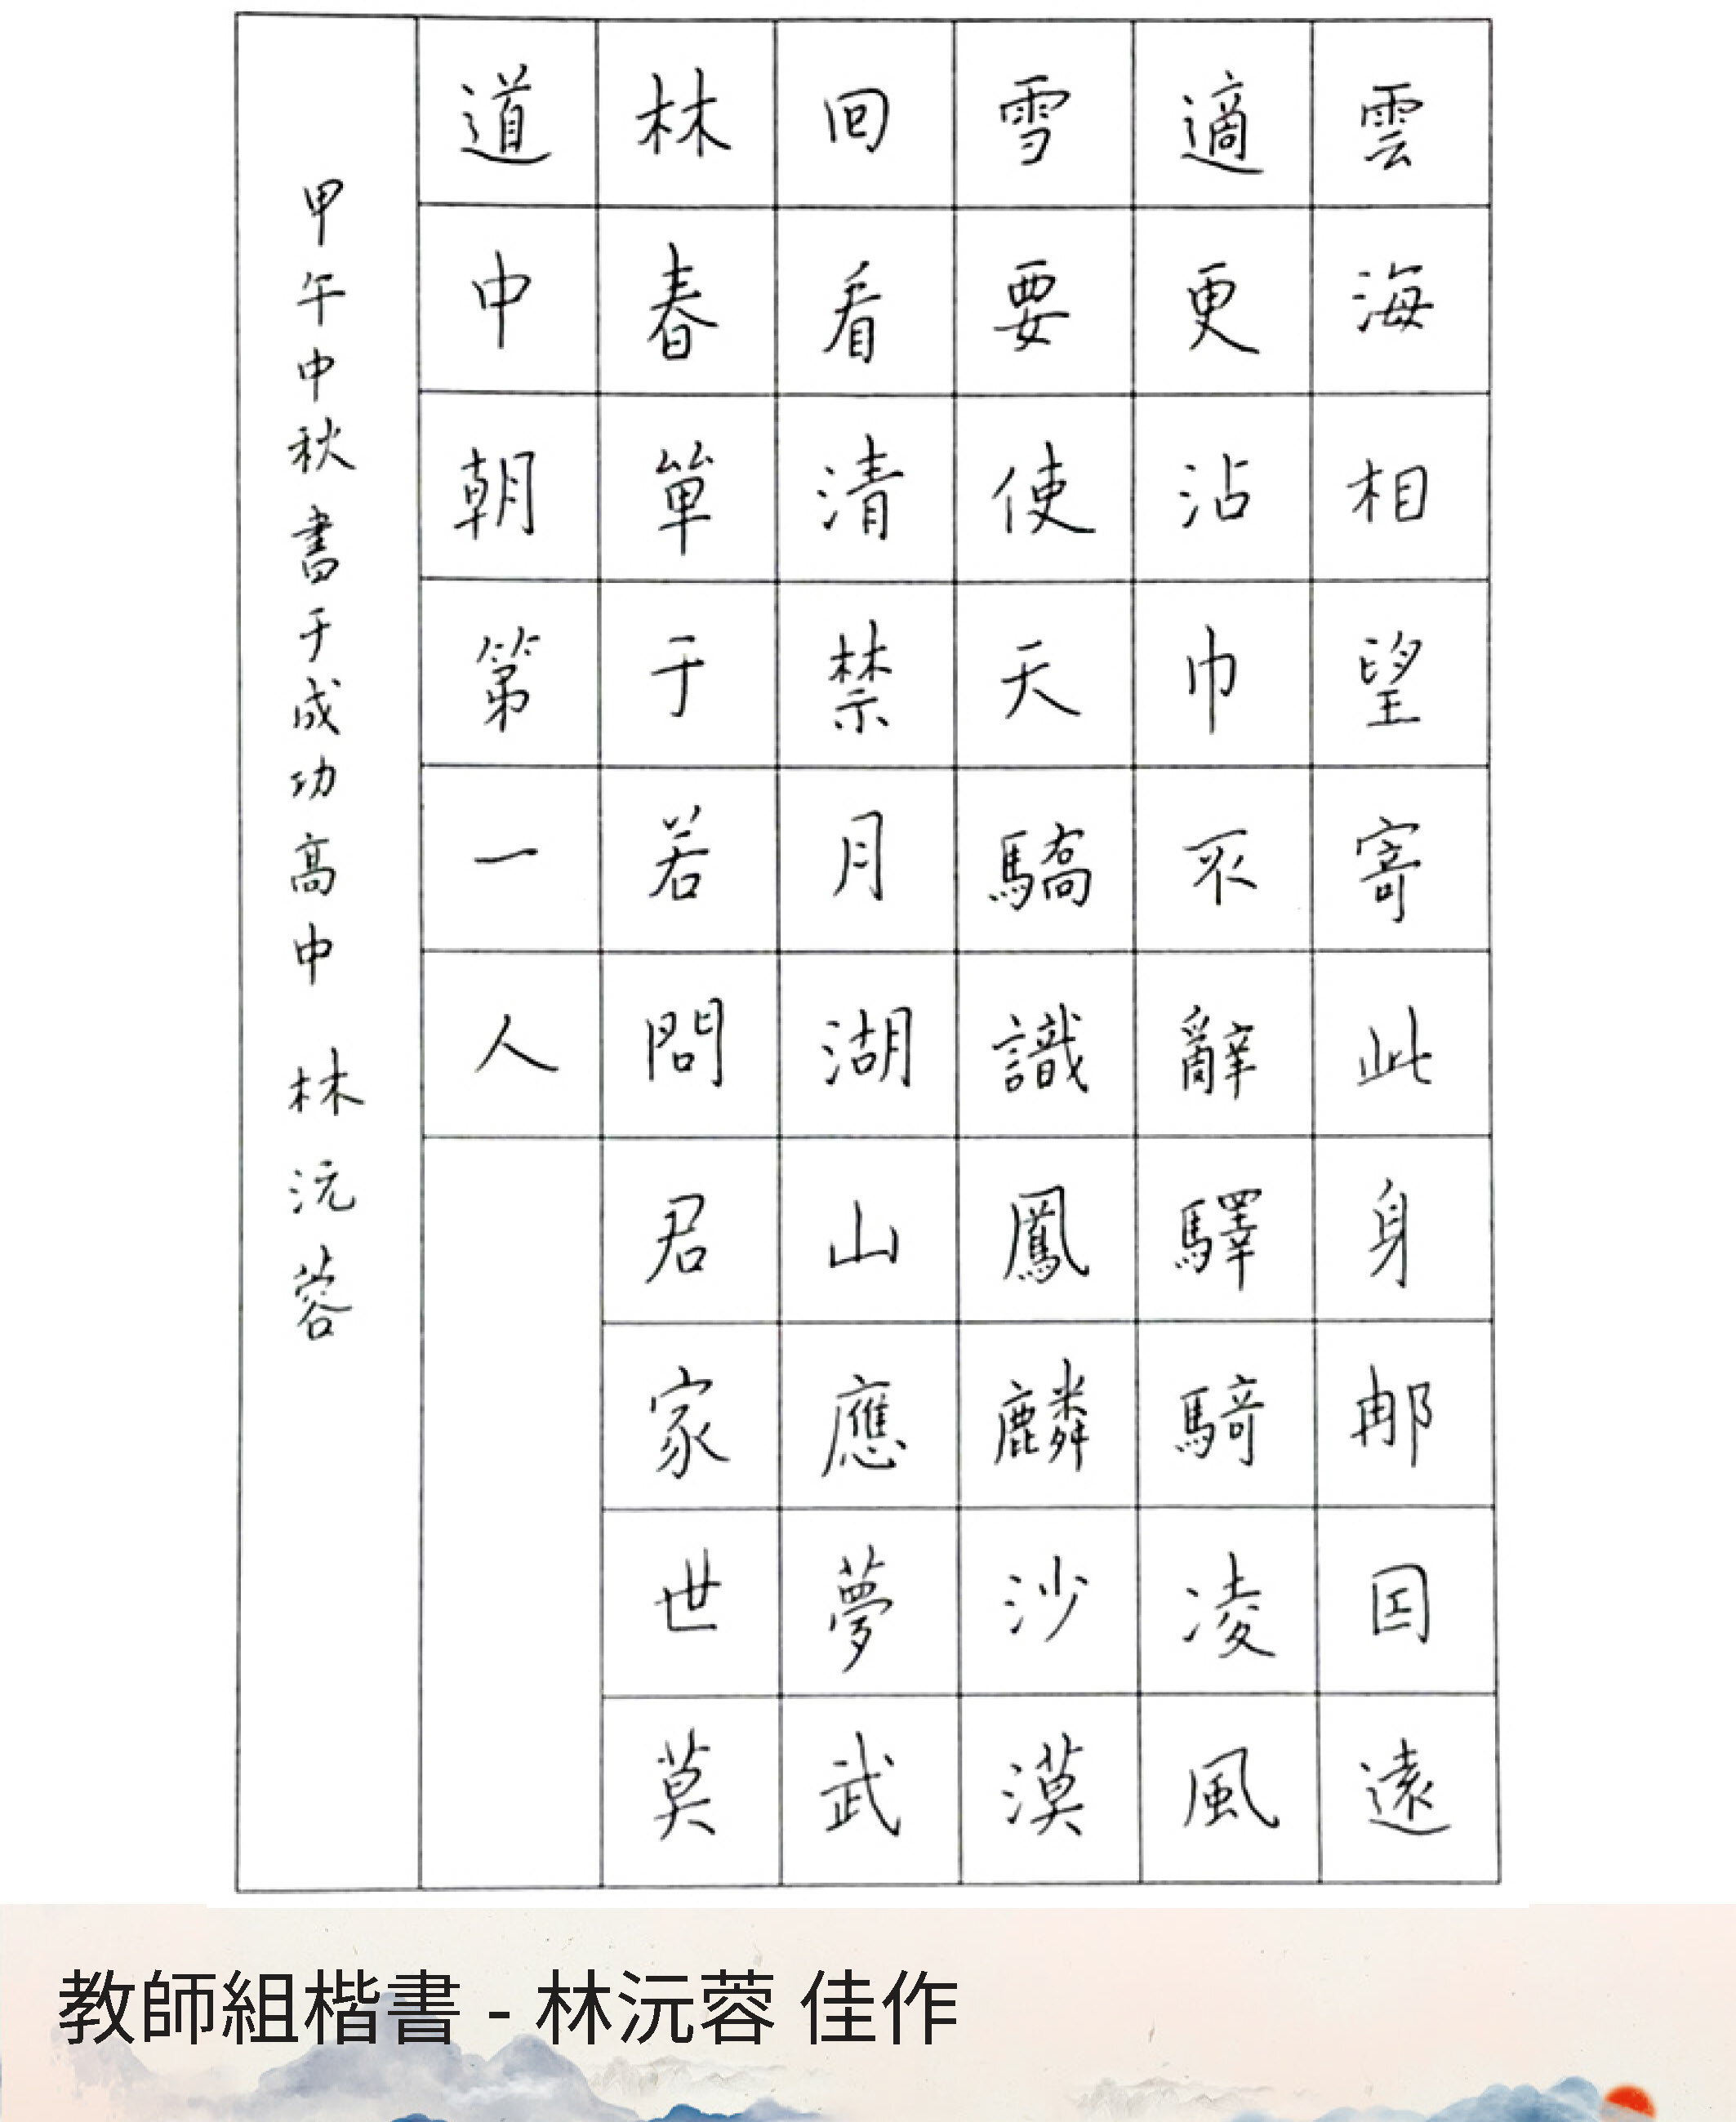 雲海相望寄此身那因遠
適更沾巾不辭驛騎凌風
雪要使天驕識鳳麟沙漠
回看清禁月湖山應夢武
林春單于若問君家世莫
道中朝第一人
甲午中秋書于成功高中 林沅蓉
教師組楷書 - 林沅蓉 佳作